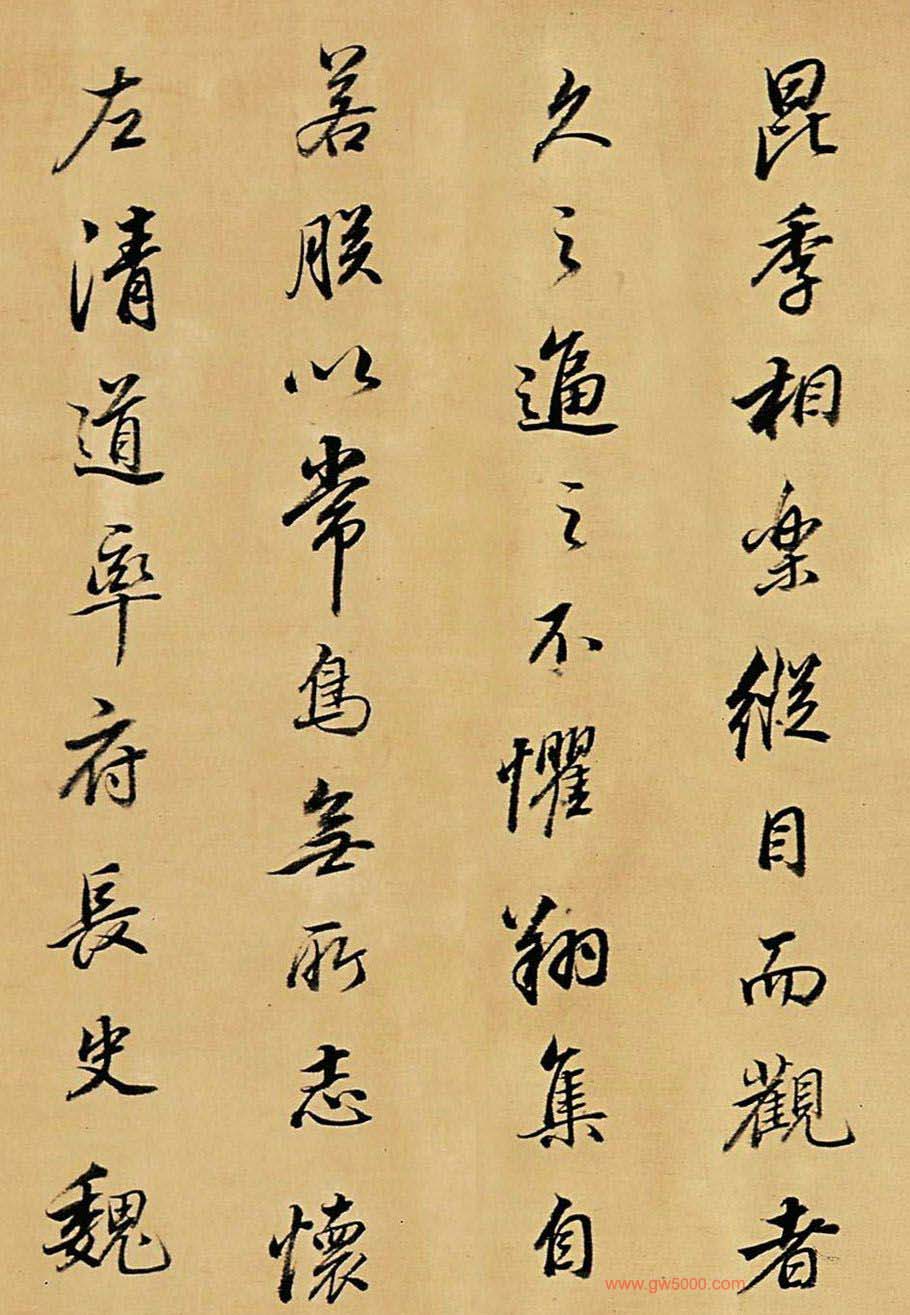 昆季相樂縱目而觀者
久之逼之不懼翔集自
若朕以常鳥無所志懷
左清道率府長史魏
www.gw5000.com